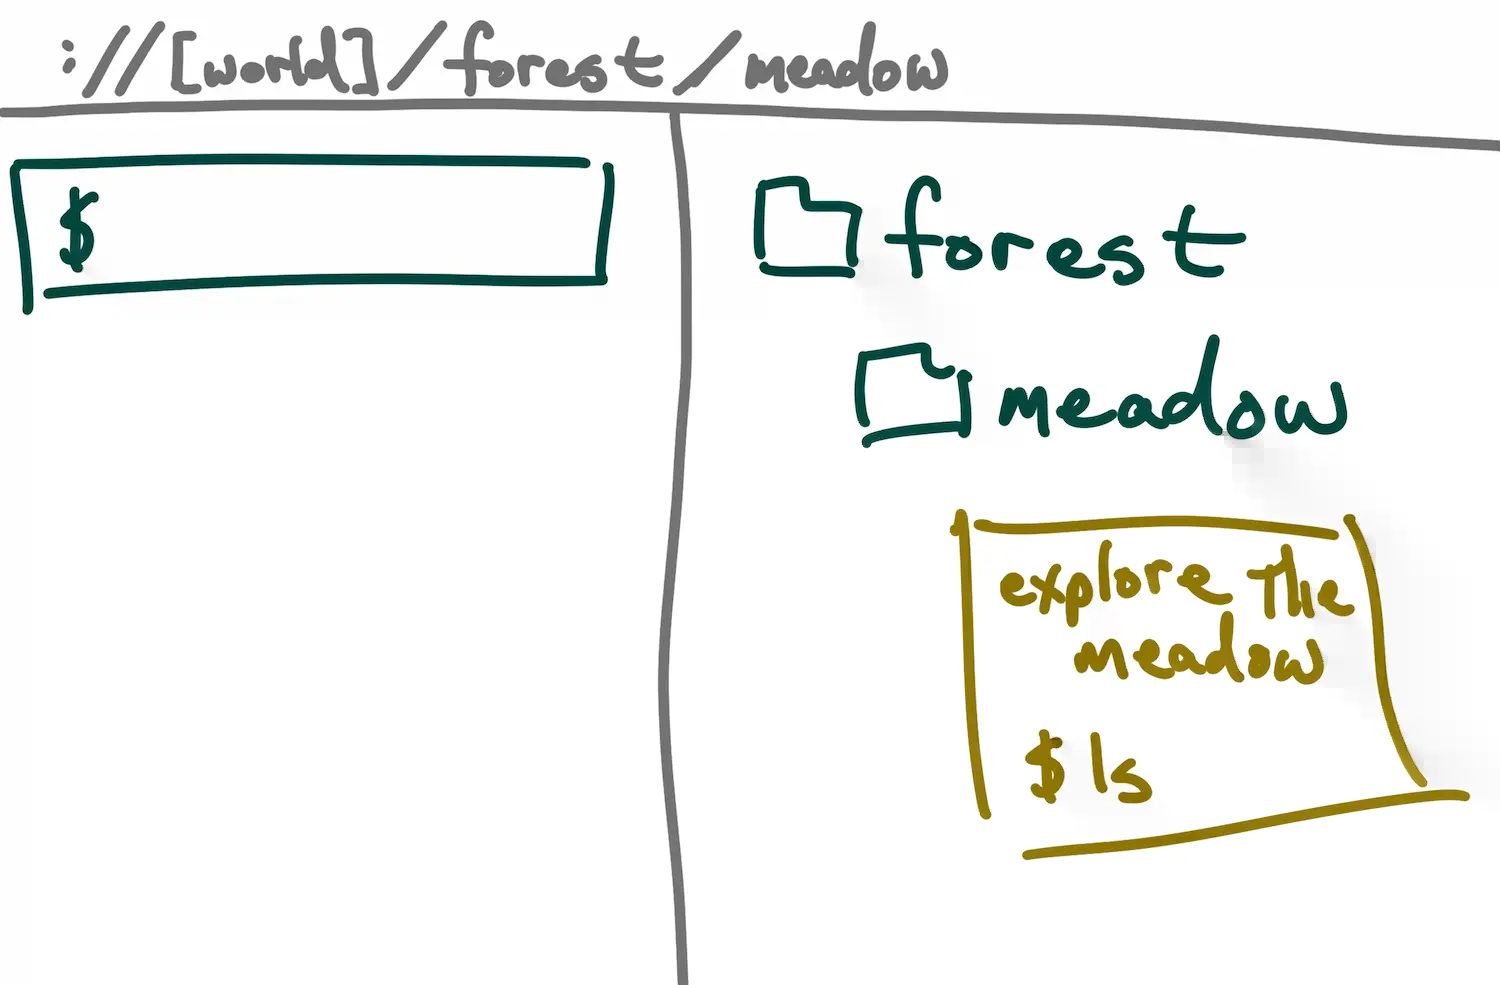 ://[world]/forest/meadow
$
forest
meadow
explore the
meadow
$ ls